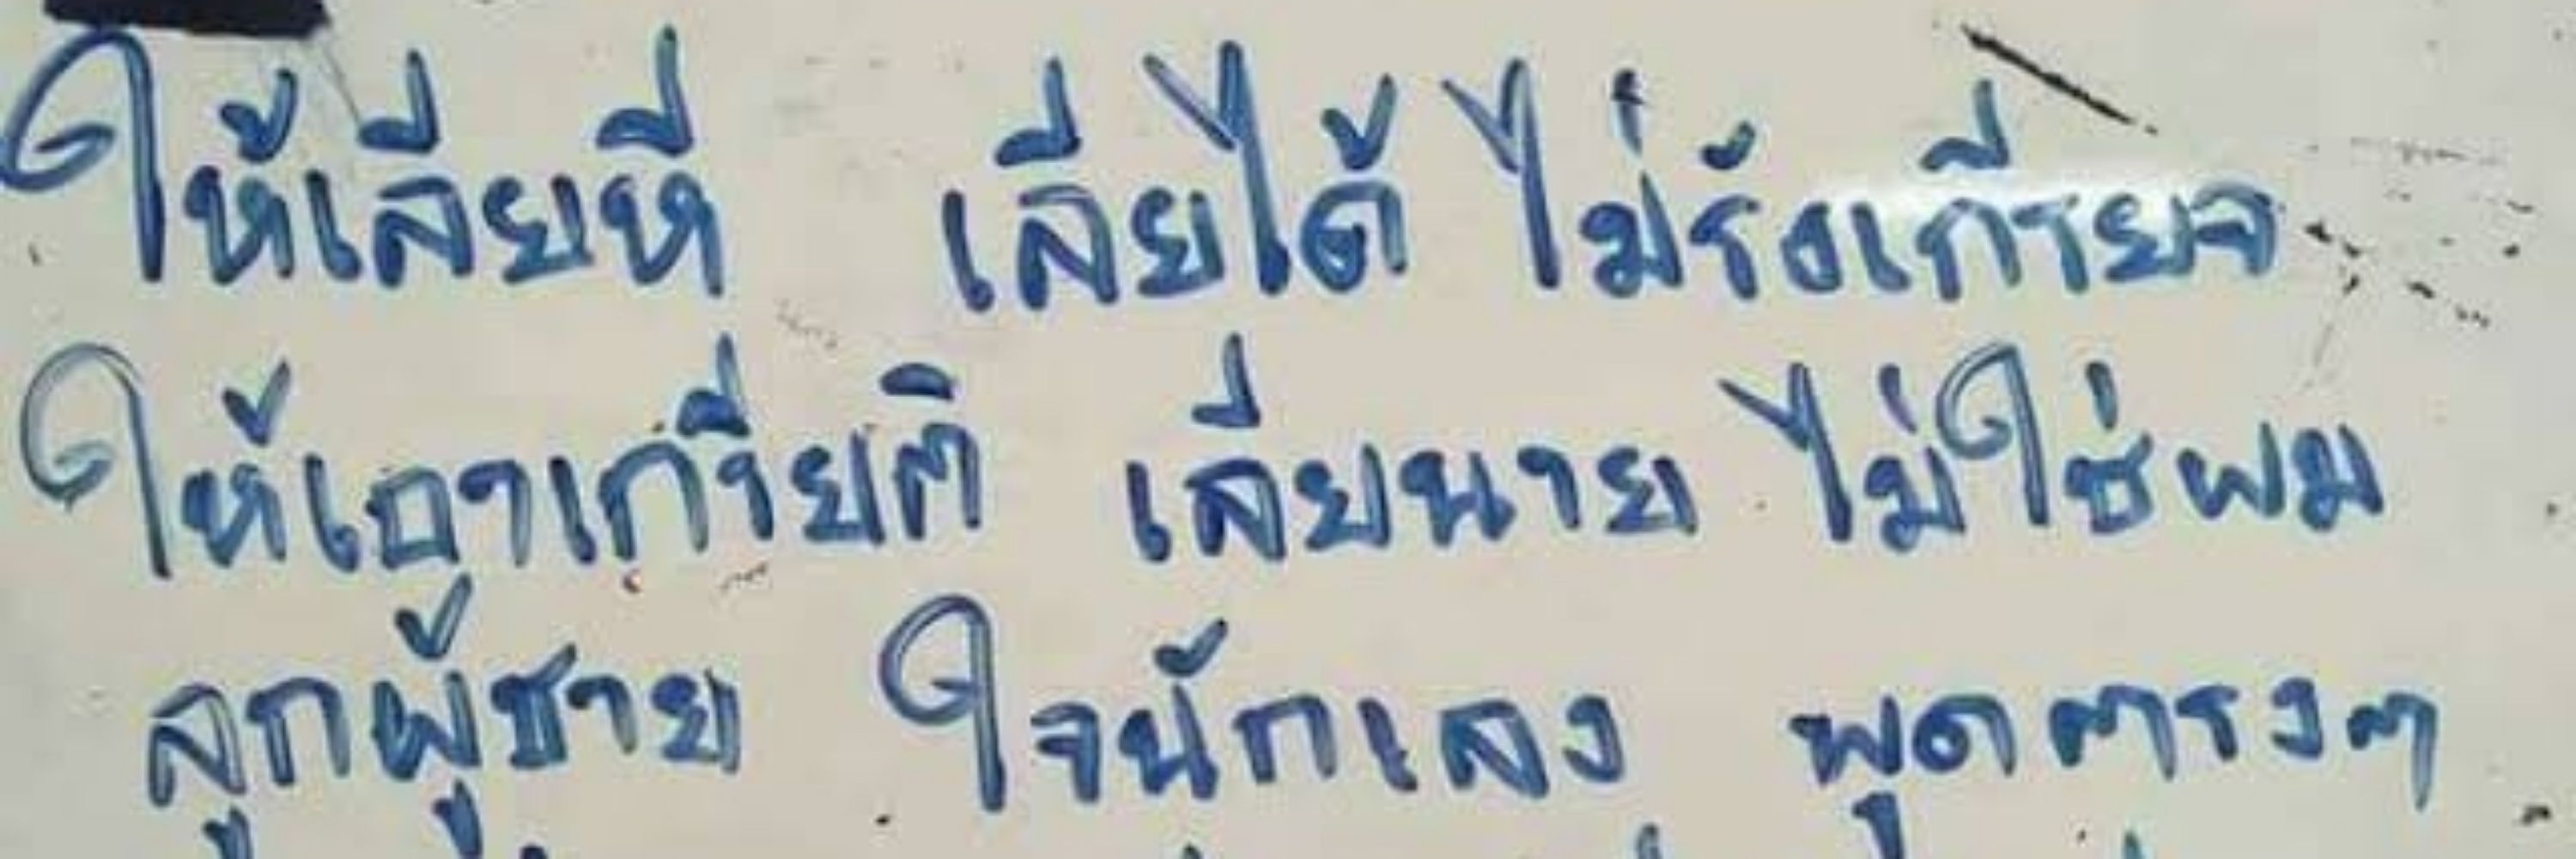 ให้เลียหี เลียได้ ไม่รังเกียจ
ให้เอาเกียติ เลียนาย ไม่ใช่ผม
ลูกผู้ชาย ใจนักเลง พูดตรงๆ